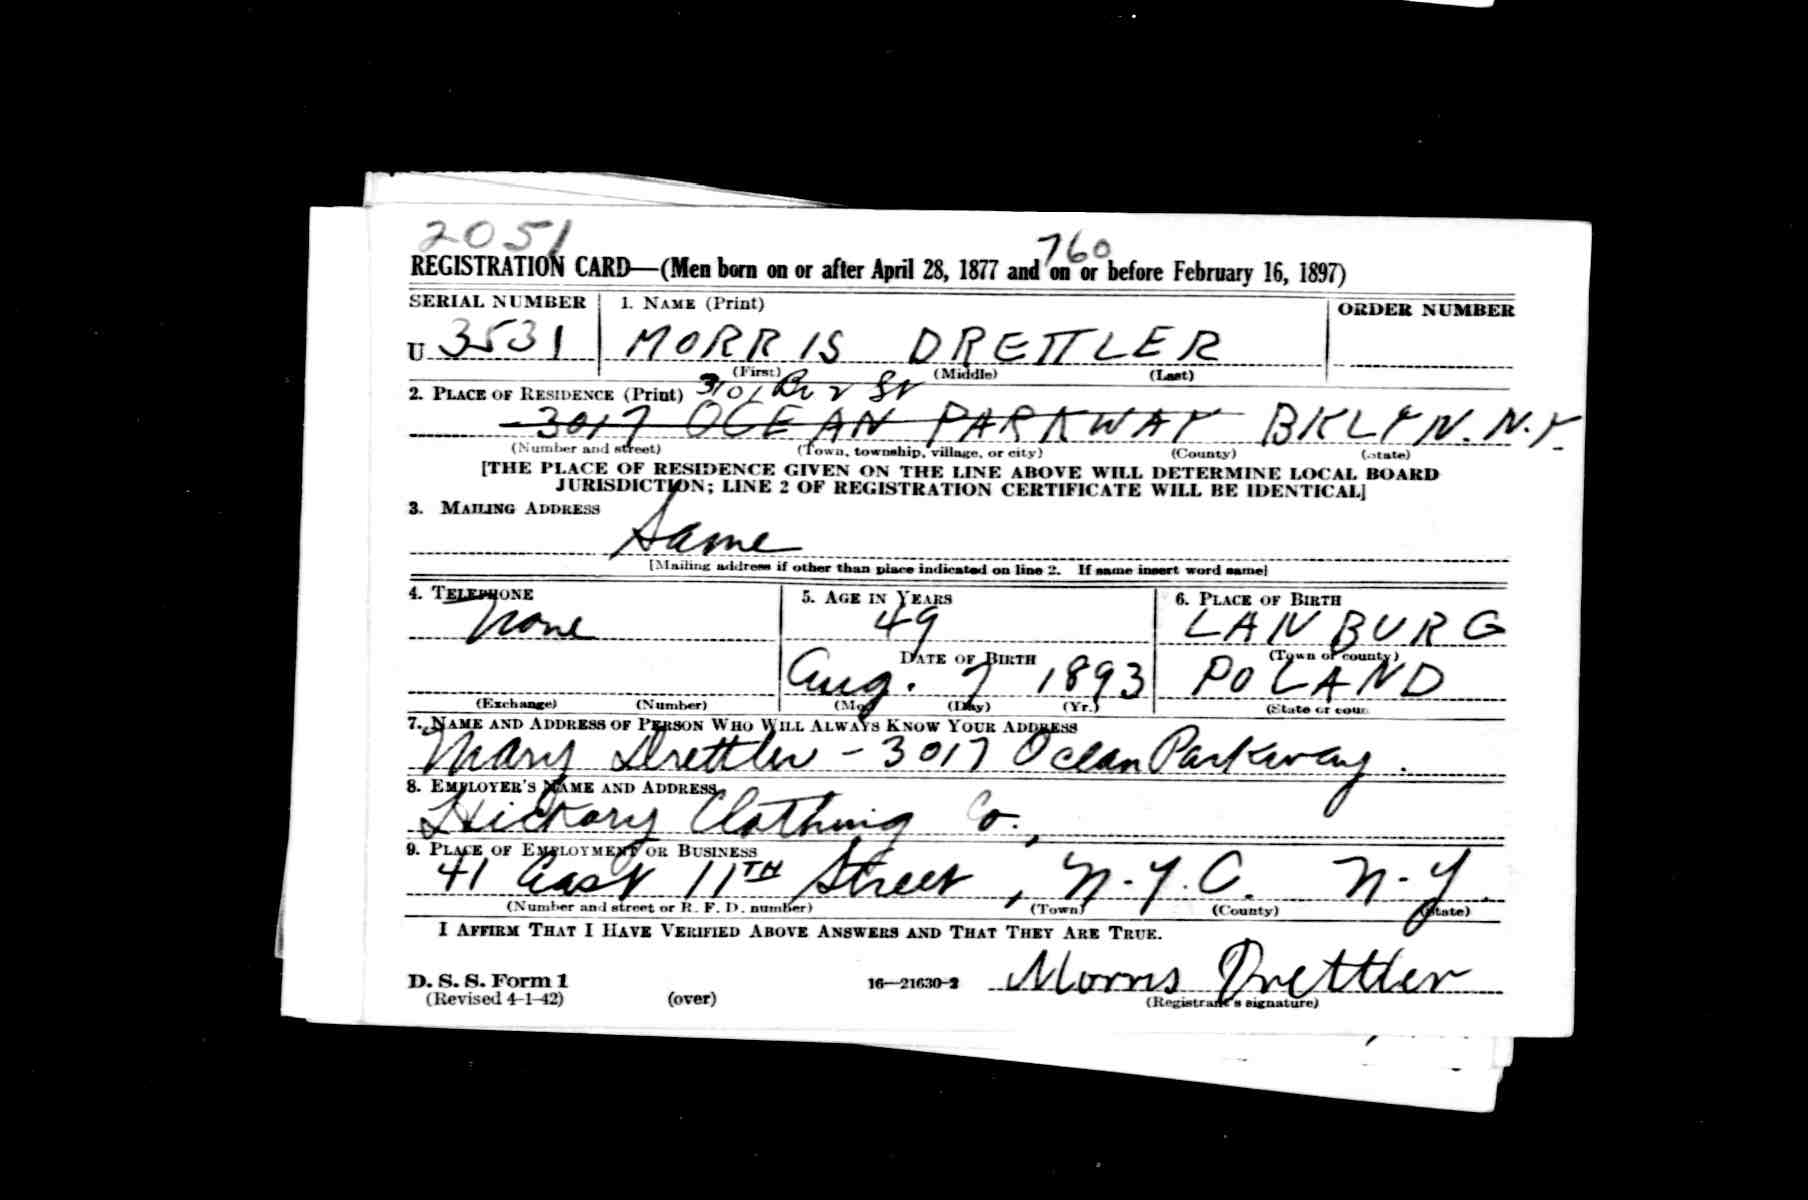 2051
760
REGISTRATION CARD—(Men born on or after April 28, 1877 and on or before February 16, 1897)
SERIAL NUMBER 1. NAME (Print) ORDER NUMBER
U 3531 MORRIS DRETTLER
(First) (Middle) (Last)
2. PLACE OF RESIDENCE (Print) 3101 Br 2 St
3017 OCEAN PARKWAY BKLYN. N.Y.
(Number and street) (Town, township, village, or city) (County) (State)
[THE PLACE OF RESIDENCE GIVEN ON THE LINE ABOVE WILL DETERMINE LOCAL BOARD
JURISDICTION; LINE 2 OF REGISTRATION CERTIFICATE WILL BE IDENTICAL]
3. MAILING ADDRESS
Same
[Mailing address if other than place indicated on line 2. If same insert word same]
4. TELEPHONE 5. AGE IN YEARS 6. PLACE OF BIRTH
None 49 LANBURG
DATE OF BIRTH (Town or county)
Aug. 7 1893 POLAND
(Exchange) (Number) (Mo.) (Day) (Yr.) (State or coun
7. NAME AND ADDRESS OF PERSON WHO WILL ALWAYS KNOW YOUR ADDRESS
Mary Drettler - 3017 Ocean Parkway.
8. EMPLOYER'S NAME AND ADDRESS
Hickory Clothing Co.,
9. PLACE OF EMPLOYMENT OR BUSINESS
41 East 11TH Street, N.Y.C. N.Y.
(Number and street or R. F. D. number) (Town) (County) (State)
I AFFIRM THAT I HAVE VERIFIED ABOVE ANSWERS AND THAT THEY ARE TRUE.
Morris Drettler
D. S. S. Form 1 16—21630-2
(Revised 4-1-42) (over) (Registrant's signature)